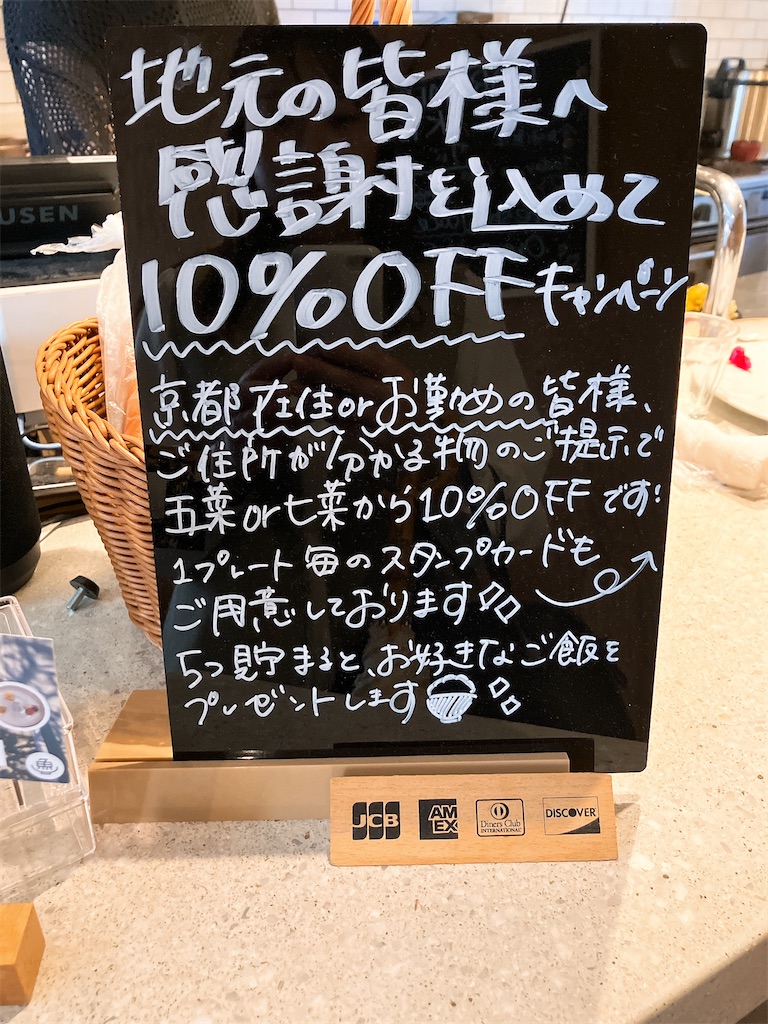 地元の皆様へ
感謝を込めて
10%OFFキャンペーン
京都在住orお勤めの皆様、
ご住所が分かる物のご提示で
五菜or七菜から10%OFFです!
1プレート毎のスタンプカードも
ご用意しております
5つ貯まると、お好きなご飯を
プレゼントします
USEN
JCB
AM
EX
Diners Club
INTERNATIONAL
DISCOVER